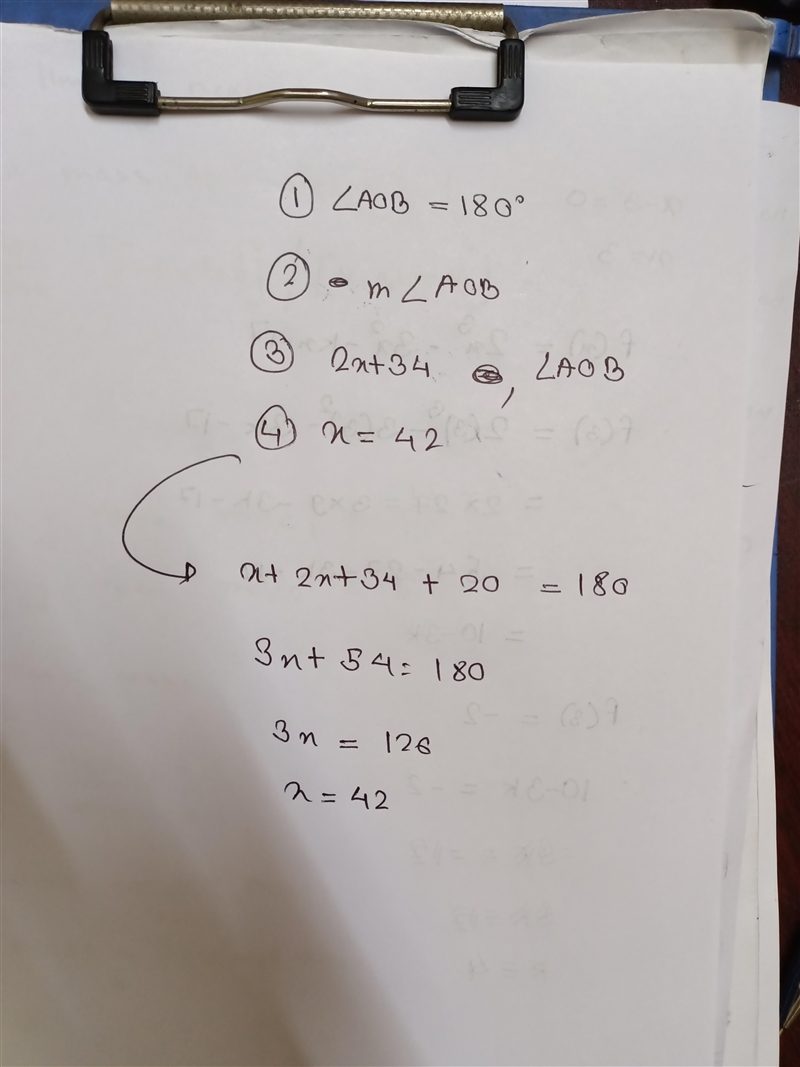 ① ∠AOB = 180°
② m∠AOB
③ 2x+34 , ∠AOB
④ x = 42
x + 2x+34 + 20 = 180
3x + 54 = 180
3x = 126
x = 42